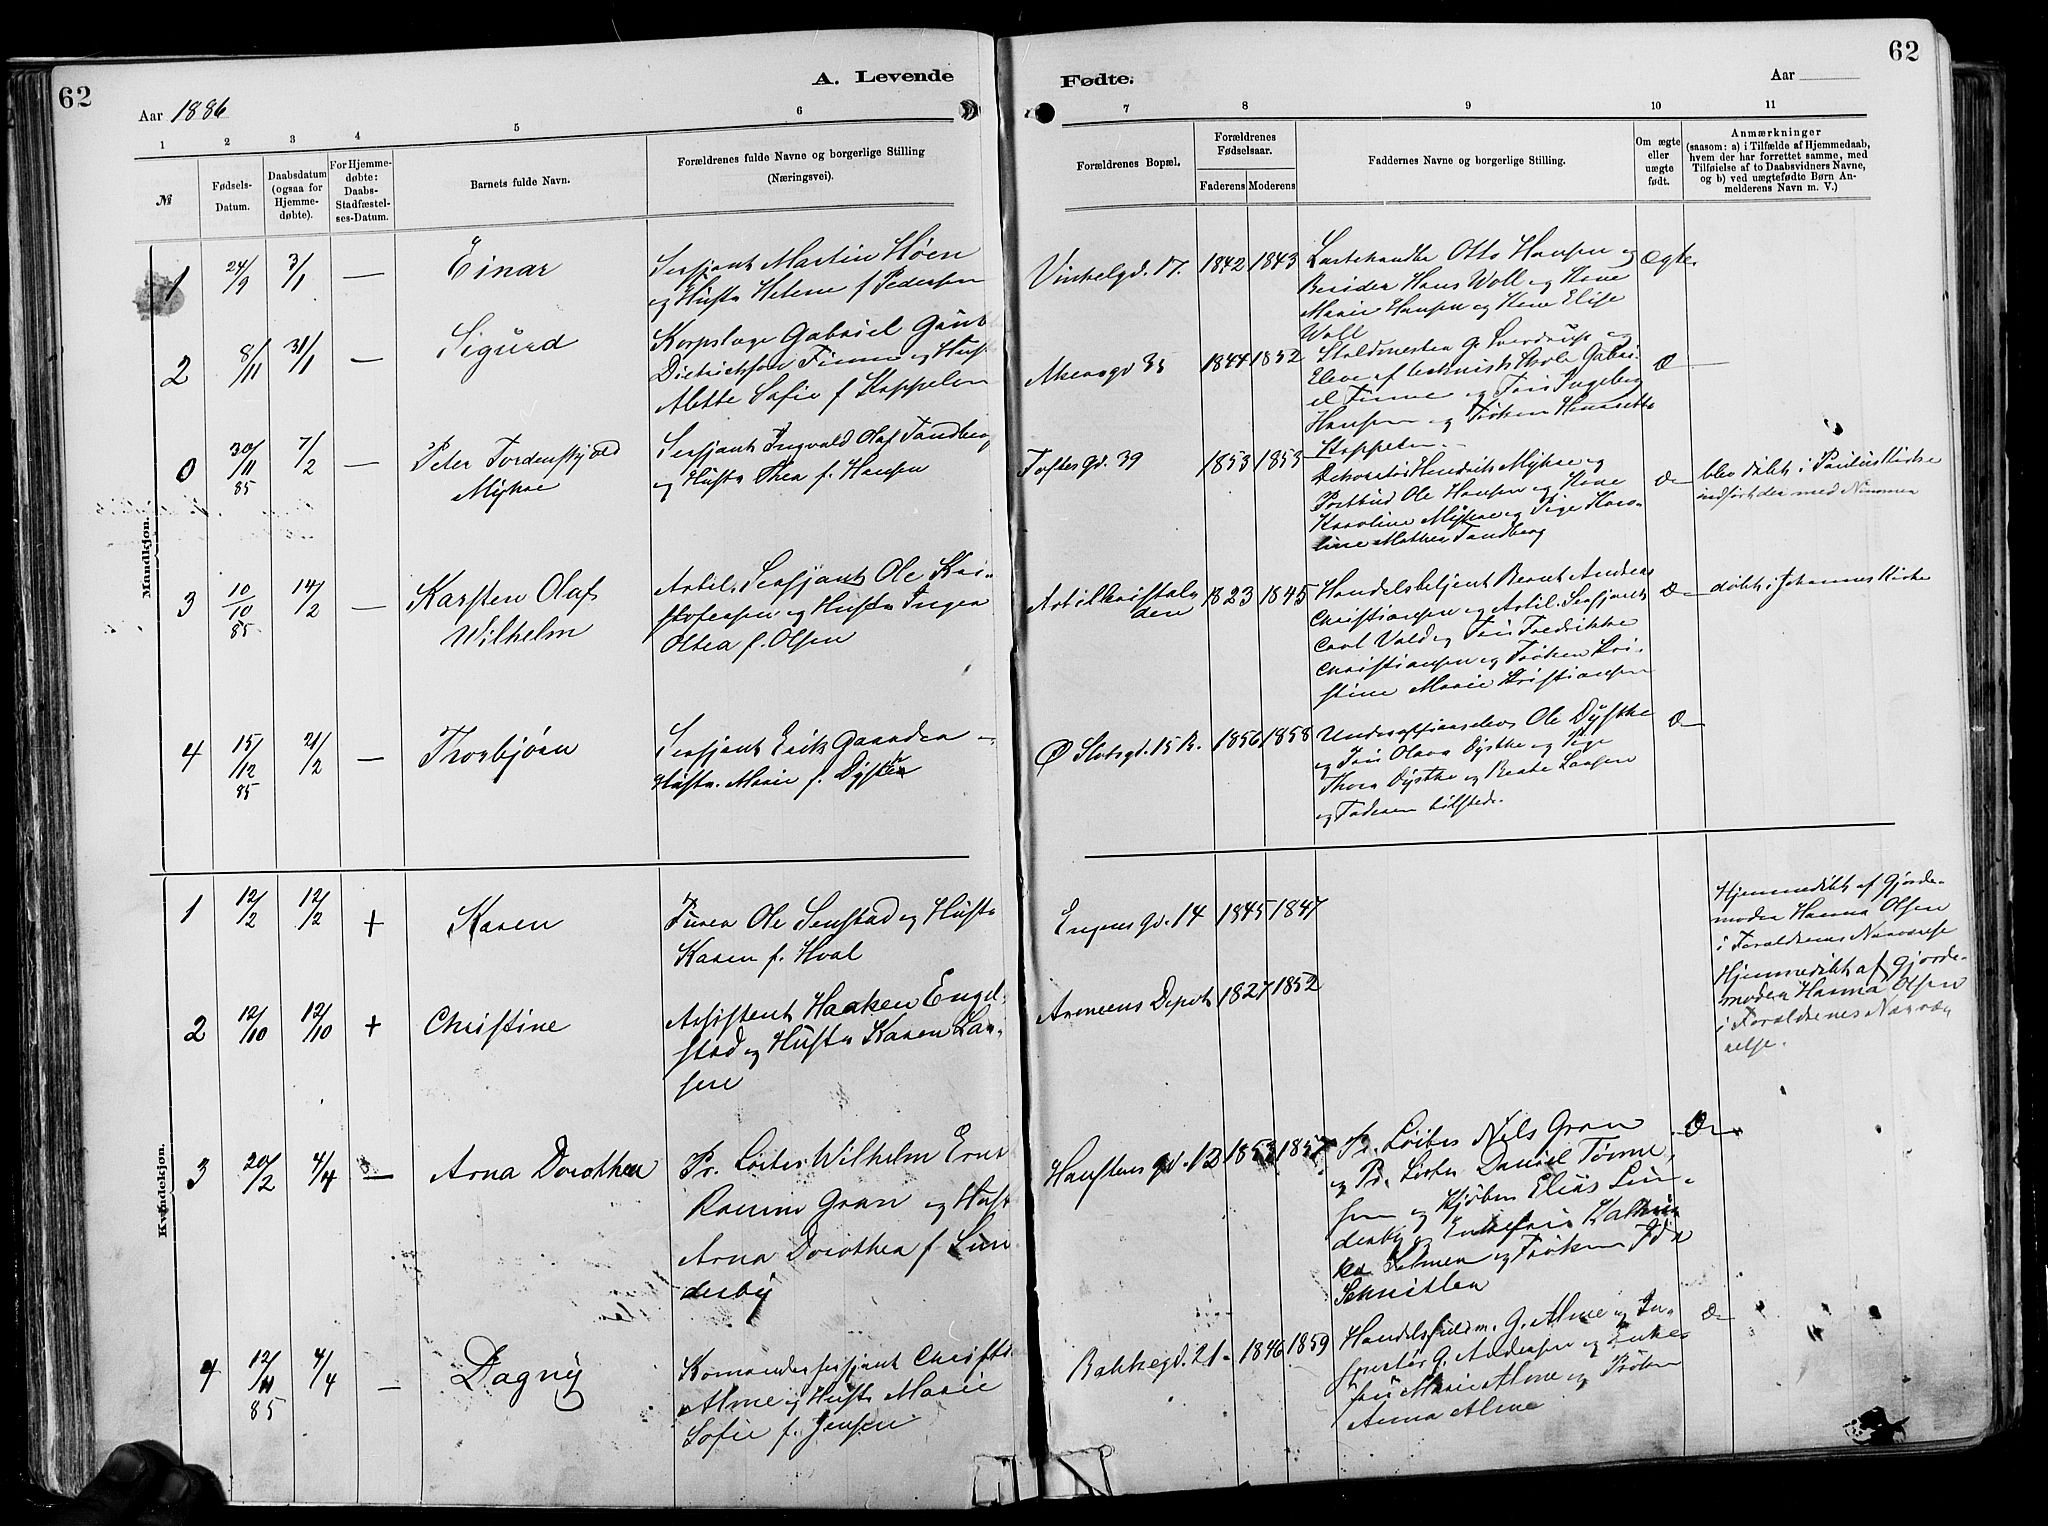 62
A. Levende
Aar 1886
1 2 3 4 5 6
№
Fødsels-
Datum.
Daabsdatum
(ogsaa for
Hjemme-
døbte).
For Hjemme-
døbte:
Daabs-
Stadfæstel-
ses-Datum.
Barnets fulde Navn.
Forældrenes fulde Navne og borgerlige Stilling
(Næringsvei).
Fødte.
Aar
62
7 8 9 10 11
Forældrenes Bopæl.
Forældrenes
Fødselsaar.
Faderens Moderens
Faddernes Navne og borgerlige Stilling.
Om ægte
eller
uægte
født.
Anmærkninger
(saasom: a) i Tilfælde af Hjemmedaab,
hvem der har forrettet samme, med
Tilføielse af to Daabsvidners Navne,
og b) ved uægtefødte Børn An-
melderens Navn m. V.)
Mandkjøn.
1 24/9 3/1 — Einar
Sersjant Martin Høen
og Hustr Helene f Pedersen
Vinkelgd. 17. 1842 1843
Otto Hansen og
Hans Woll og Kone
Marie Hansen og Kone Elise
Woll
ægte
2 8/11 31/1 — Sigurd
Korpslæge Gabriel Günt
Dietrichson Finne og Hust
Alette Sofie f Koppelen
Akersgd 35 1844 1852
Staldmester G. Sverdrup og
Elev af tekniske Skole Gabri-
el Finne og Fru Ingeborg
Hansen og Frøken Henriette
Æ —
0 30/11 85 7/2 — Peter Tordenskjold
Mykre
Sersjant Ingvald Olaf Tandberg
og Hustr Thea f. Hansen
Toftesgd. 39 1853 1853
Dekoratør Hendrik Mykre og
Postbud Ole Hansen og Kone
Karoline Mykre og Pige Karo-
line Mathea Tandberg
Æ —
blev døbt i Paulus Kirke
indført der med Nummer
3 10/10 85 14/2 — Karsten Olaf
Wilhelm
Artil. Sersjant Ole Kri-
stofersen og Hustr Inger
Oltea f. Olsen
Artilleristal
den
1823 1845
Handelsbetjent Bernt Andreas
Christiansen og Artil. Sersjant
Carl Vold og Fru Fredrikke
Christiansen og Frøken Kri-
stine Marie Kristiansen
Æ —
døbt i Johannes Kirke
4 15/12 85 21/2 — Thorbjørn
Sersjant Erik Gaarder —
Hustr. Marie f. Dyste
Ø Slotsgd. 15 B. 1856 1858
Underofficerselev Ole Dyste
og Fru Olava Dyste og Pige
Thora Dyste og Beate Larsen
og Faderen tilstede.
Æ —
Kvindekjøn.
1 12/2 12/2 + Karen
Furer Ole Senstad og Hustr
Karen f. Hval
Eugenesgd. 14 1845 1847
Hjemmedøbt af Gjorde-
moder Hanna Olsen
i Forældrenes Nærværelse
2 12/10 12/10 + Christine
Assistent Haaken Engel-
stad og Hustr Karen Lar-
sen
Armeens Depot 1827 1852
Hjemmedøbt af Gjorde-
moder Hanna Olsen
i Forældrenes Nærvæ
relse.
3 20/2 4/4 — Arna Dorothea
Pr. Løitn. Wilhelm Ernst
Gran og Hust
Arna Dorothea f. Lun
derby
Haustensgd. 12 1853 1857
Pr. Løitn Nels Gran
og Pr. Løitn Daniel Tønne
sen og Kjøbm Elias Lun-
derby og Enkefru Kathrin
ka Selmer og Frøken Ida
Schnitler
Æ —
4 12/11 85 4/4 — Dagny
Komandersersjant Christi
Alme og Hustr Marie
Sofie f. Jensen
Bakkegd. 21 1846 1859
Handelsfuldm. G. Alme og In-
spektør G. Andersen og Enke-
fru Marie Alme og Frøken
Anna Alme
Æ —